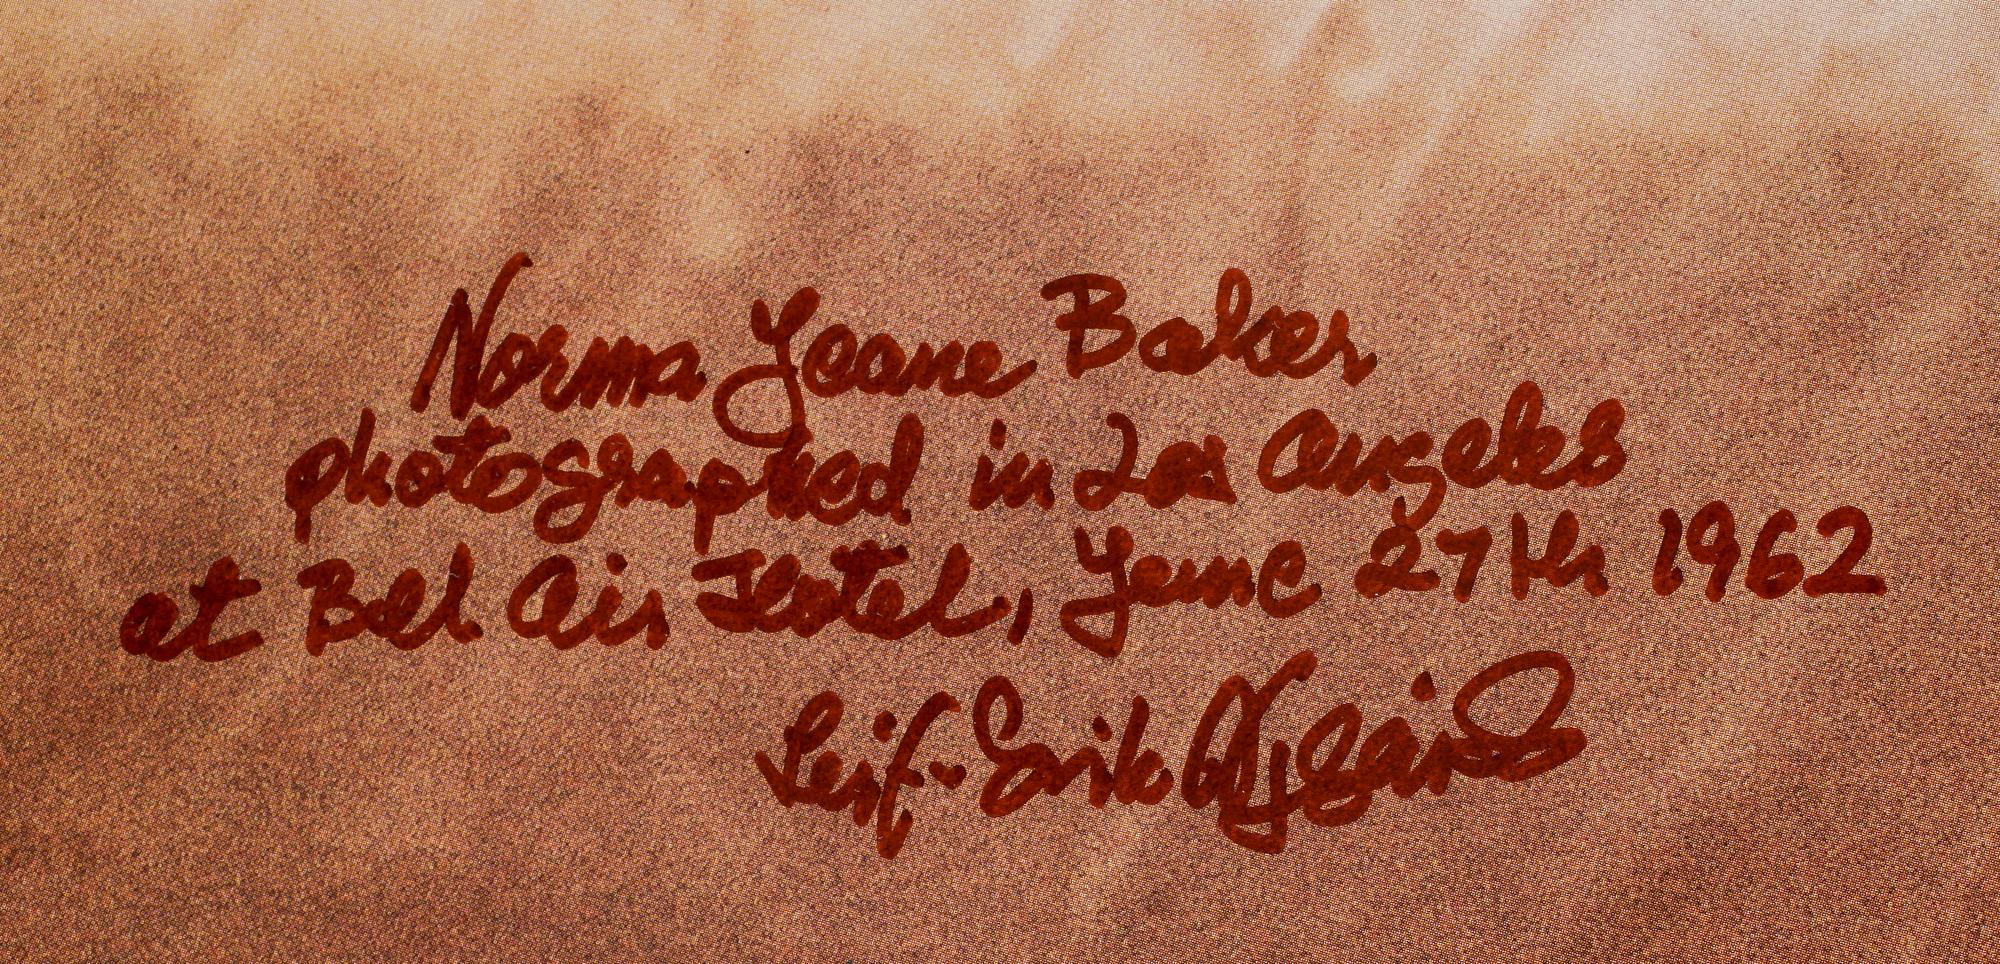 Norma Jeane Baker
photographed in Los Angeles
at Bel Air Hotel, June 27th 1962
Leif-Erik Nygårds